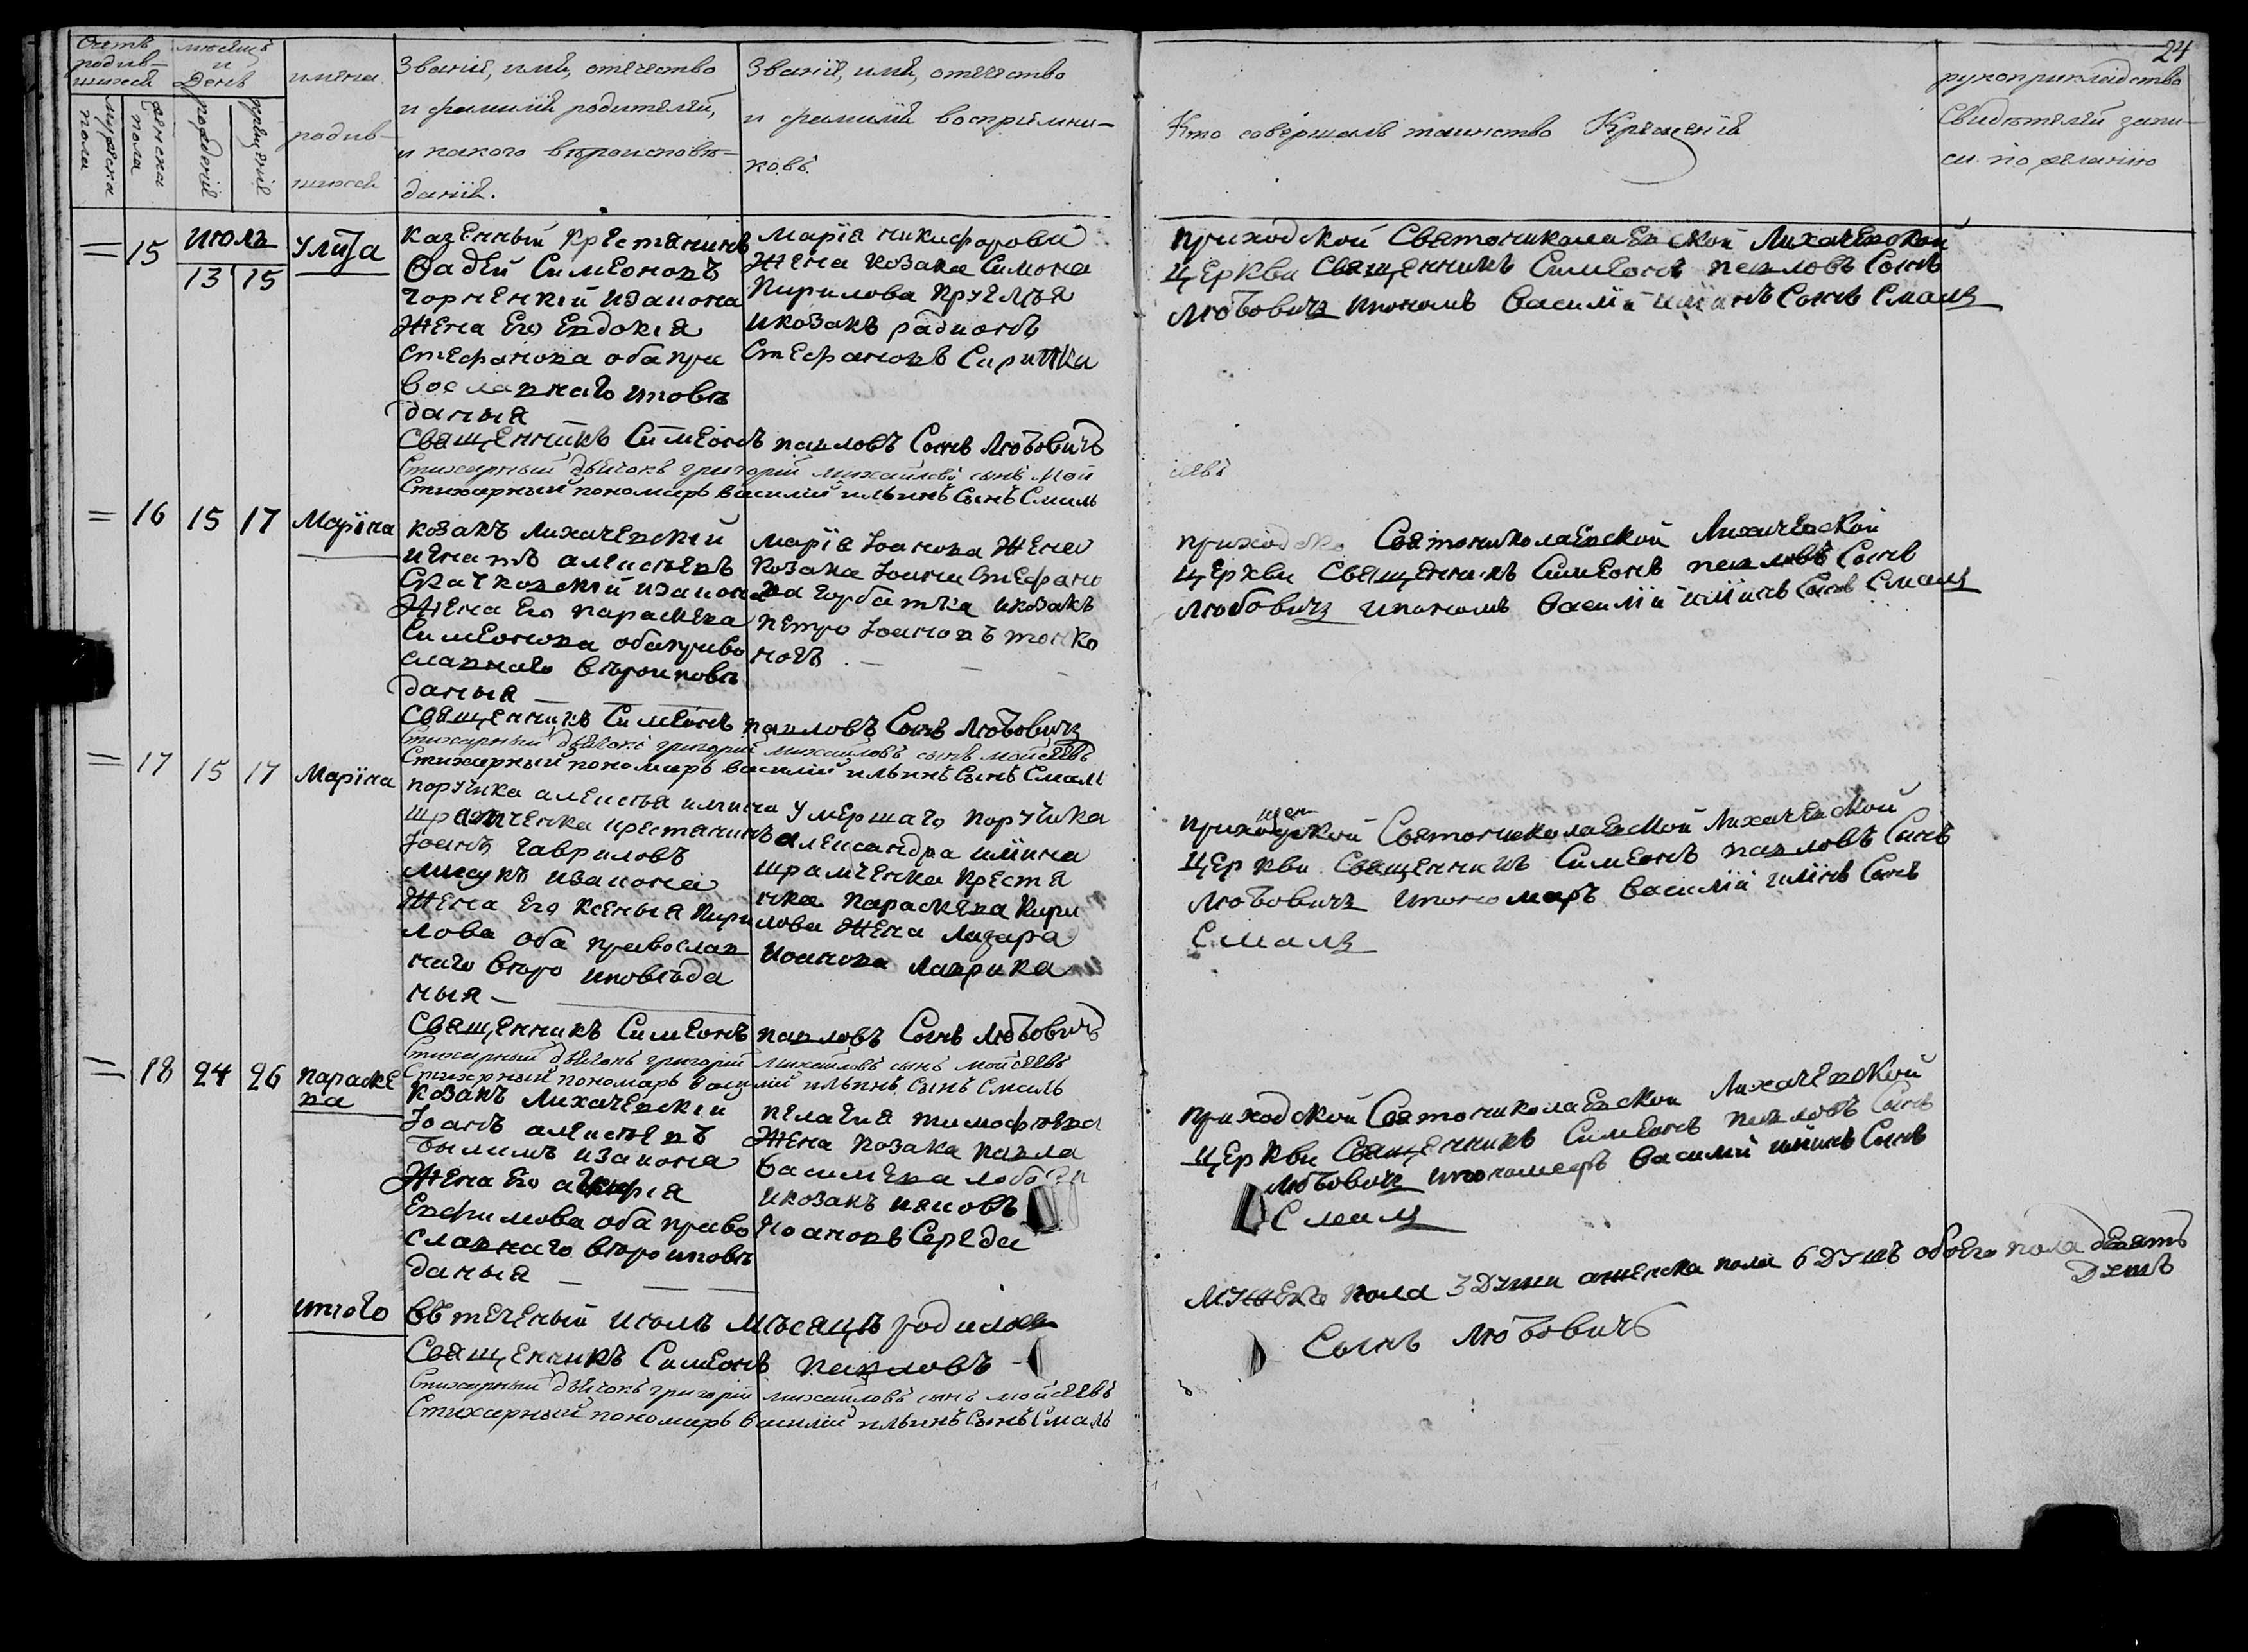 24
Счетъ родив-
шихся
мужеска пола
женска пола
мѣсяцъ
и
День
рожденія
крещенія
имѧна
родив-
шихся
Званіе, имя, отечество
и фамилія родителей,
и какого вѣроисповѣ-
данія.
Званіе, имя, отечество
и фамилія воспріемни-
ковъ.
Кто совершалъ таинство Крещенія
рукоприкладство
Свидѣтелей запи-
си по желанію
15
июль
13 15
Улита
казенный крестянинъ
Фадей Симеоновъ
Чорненкий изаконна
Жена Его Евдокия
Стефанова оба пра
вославнаго
даныя
Марія никифорова
Жена козака Симона
Кирилова
и козакъ радионъ
Стефановъ
приходской Святониколаевской Лихачевской
Церкви Священникъ Симеонъ павловъ Сынъ
Любовичъ Василий Сынъ Смаль
Священникъ Симеонъ павловъ Сынъ Любовичъ
Стихарный дьячокъ григорій михайловъ сынъ Мой
сѣевъ
Стихарный пономарь василий ильинъ Сынъ Смаль
16 15 17 Маріна
козакъ Лихачевский
игнатъ алексѣевъ
изаконна
Жена Его параскева
Симеонова оба право
славнаго вѣроиповѣ
даныя
Марія Іоанова Жена
козака Іоанна Стефано
ва горбатка и козакъ
петро Іоановъ тонко
ногъ
приходско Святониколаевской Лихачевской
Церкви Священникъ Симеонъ павловъ Сынъ
Любовичъ Василий Сынъ Смаль
Священникъ Симеонъ павловъ Сынъ Любовичъ
Стихарный дьячокъ григорій михайловъ сынъ мойсѣевъ
Стихарный пономарь василий ильинъ Сынъ Смаль
17 15 17 Маріна
поручика алексѣя илина
Шрамченка крестянинъ
Іоанъ гавриловъ
изаконна
Жена Его Ксенья Кири
лова оба православ
наго вѣро иповѣда
ныя
умершаго поручика
александра илина
Шрамченка крестя
нка параскева Кири
лова Жена Лазара
Иоанова Лаврика
приходской Святониколаевской Лихачевской
Церкви Священникъ Симеонъ павловъ Сынъ
Любовичъ ипономаръ Василий илинъ Сынъ
Смаль
Священникъ Симеонъ павловъ Сынъ Любовичъ
Стихарный дьячокъ григорій михайловъ сынъ мойсѣевъ
Стихарный пономарь василий ильинъ Сынъ Смаль
18 24 26 параске
ва
козакъ Лихачевский
Іоанъ алексѣевъ
изаконна
Жена Его
Евфимова оба право
славнаго вѣроиповѣ
даныя
пелагия тимофѣева
Жена козака павла
Василиева
и козакъ яковъ
Иоановъ Середа
приходской Святониколаевской Лихачевской
Церкви Священникъ Симеонъ павловъ Сынъ
Любовичъ ипономаръ Василий илинъ Сынъ
Смаль
итого
вѣ теченый июлъ Мѣсяцѣ родилося
пола 3 Души аженска пола 6 Душъ обоего пола девять
Душъ
Священникъ Симеонъ павловъ
Сынъ Любовичъ
Стихарный дьячокъ григорій михайловъ сынъ мойсѣевъ
Стихарный пономарь василий ильинъ Сынъ Смаль